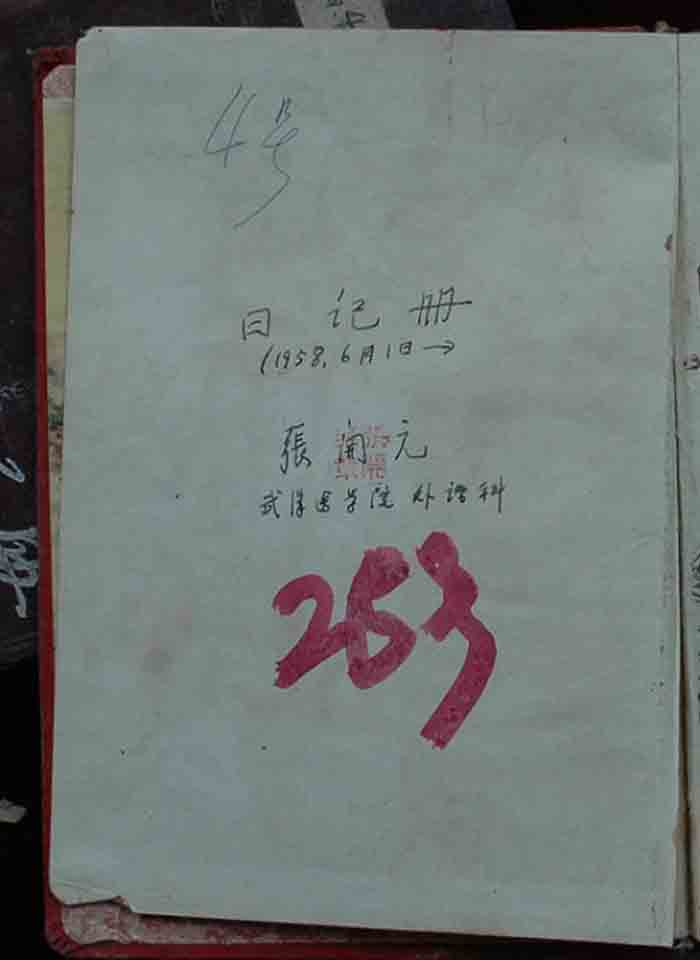 4号
日 记 册
(1958.6月1日→
張 開 元
武漢医学院 外語科
253